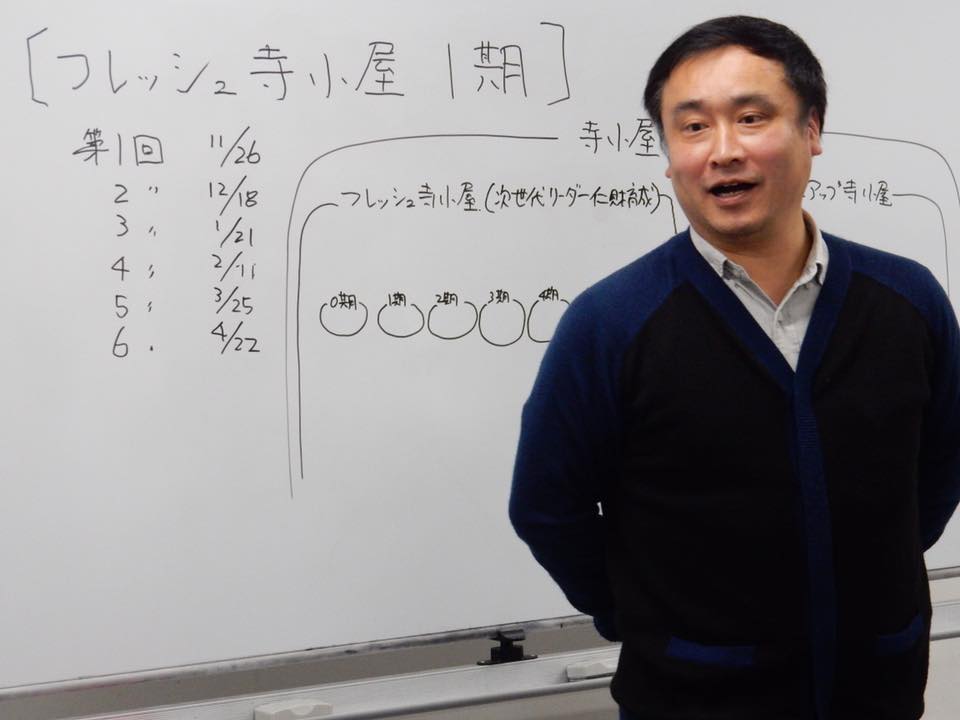 [フレッシュ寺小屋 1期]
第1回 11/26
2 〃 12/18
3 〃 1/21
4 〃 2/11
5 〃 3/25
6 . 4/22
寺小屋
フレッシュ寺小屋 (次世代リーダー仁財育成)
アップ寺小屋
0期 1期 2期 3期 4期